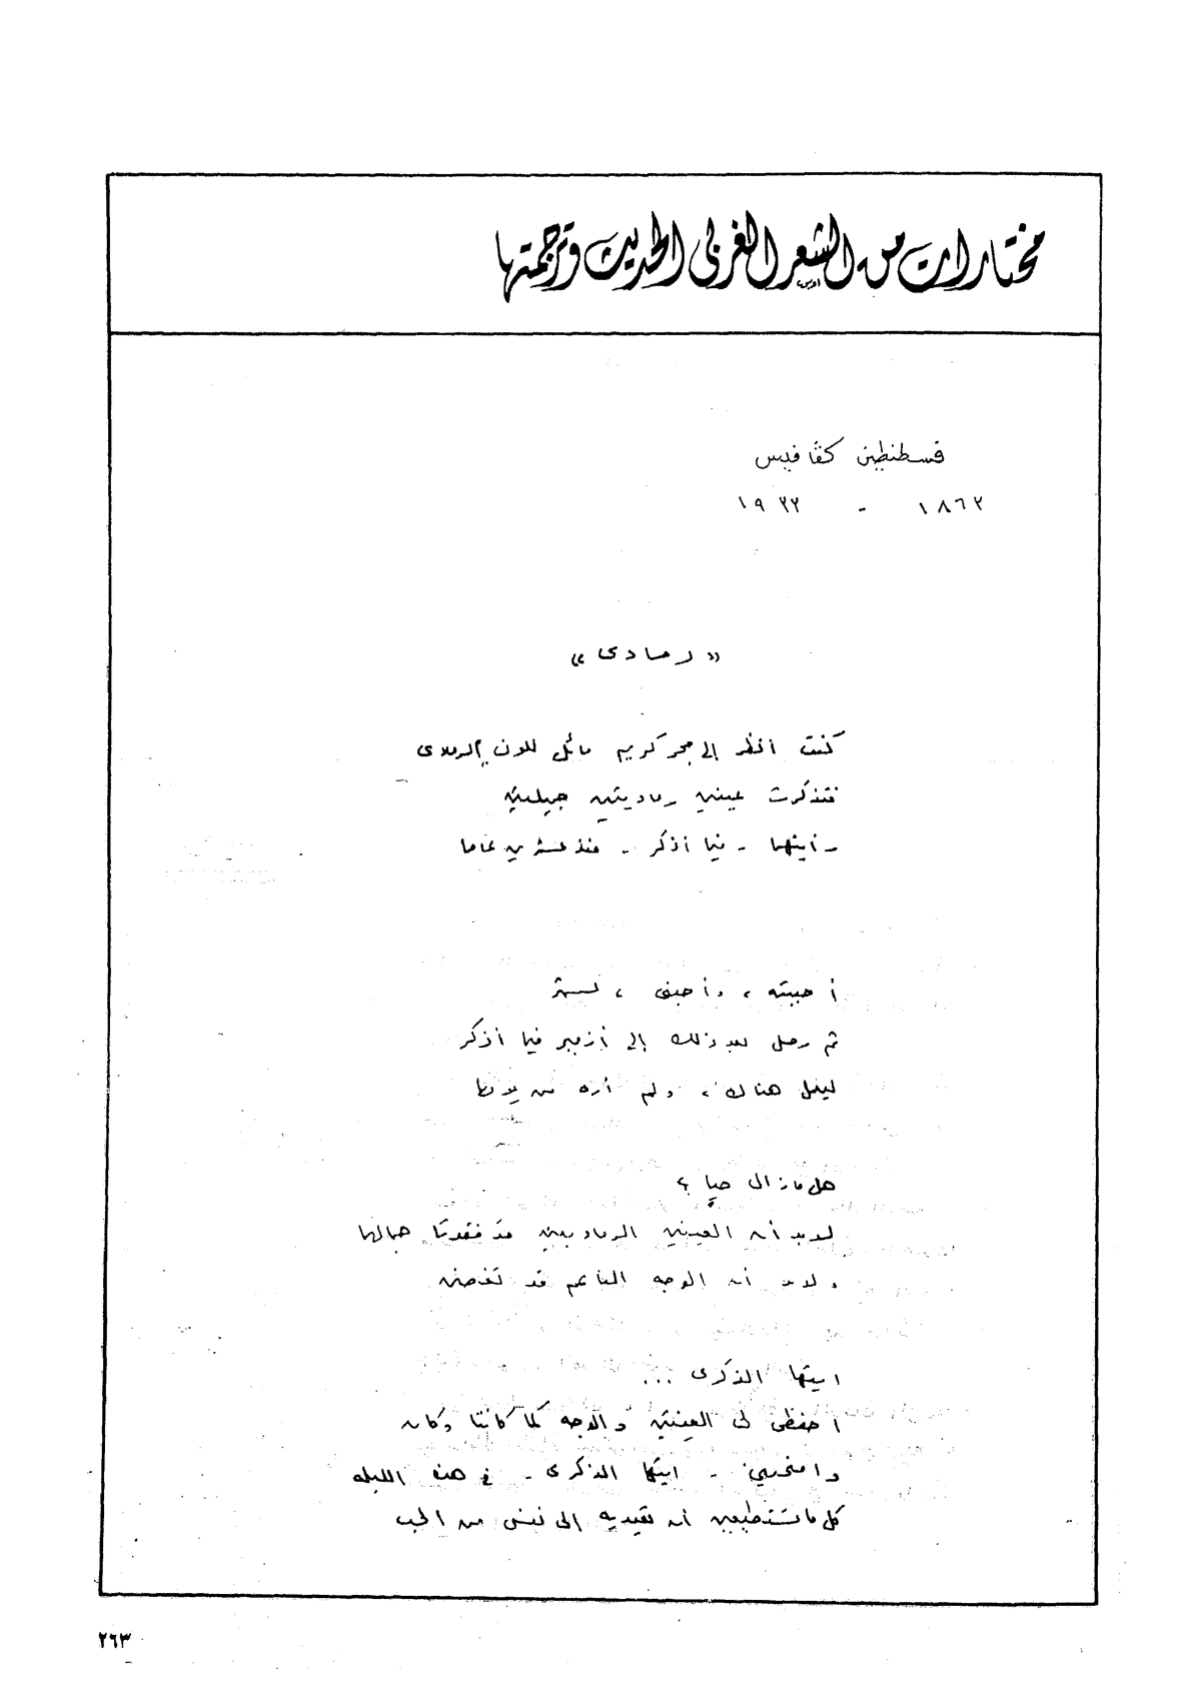 مختارات من الشعر الغربى الحديث وترجمتها
قسطنطين كفافيس
١٨٦٣ - ١٩٣٣
«رمادى»
كنت أنظر إلى حجر كريم مائل للون الرمادى
فتذكرت عينين رماديتين جميلتين
رأيتهما - فيما أذكر - منذ عشرين عاما
أحببته ، وأحبنى ،
ثم رحل بعد ذلك إلى أزمير فيما أذكر
ليعمل هناك ، ولم أره من يومها
هل مازال حيا ؟
لابد أن العينين الرماديتين قد فقدتا جمالها
ولابد أن الوجه الناعم قد تغضن
ايتها الذكرى ...
احفظى لى العينين والوجه كما كانتا وكان
وامنحينى - ايتها الذكرى - فى هذه الليلة
كل ماتستطيعين أن تعيديه إلى نفسى من الحب
٢٦٣